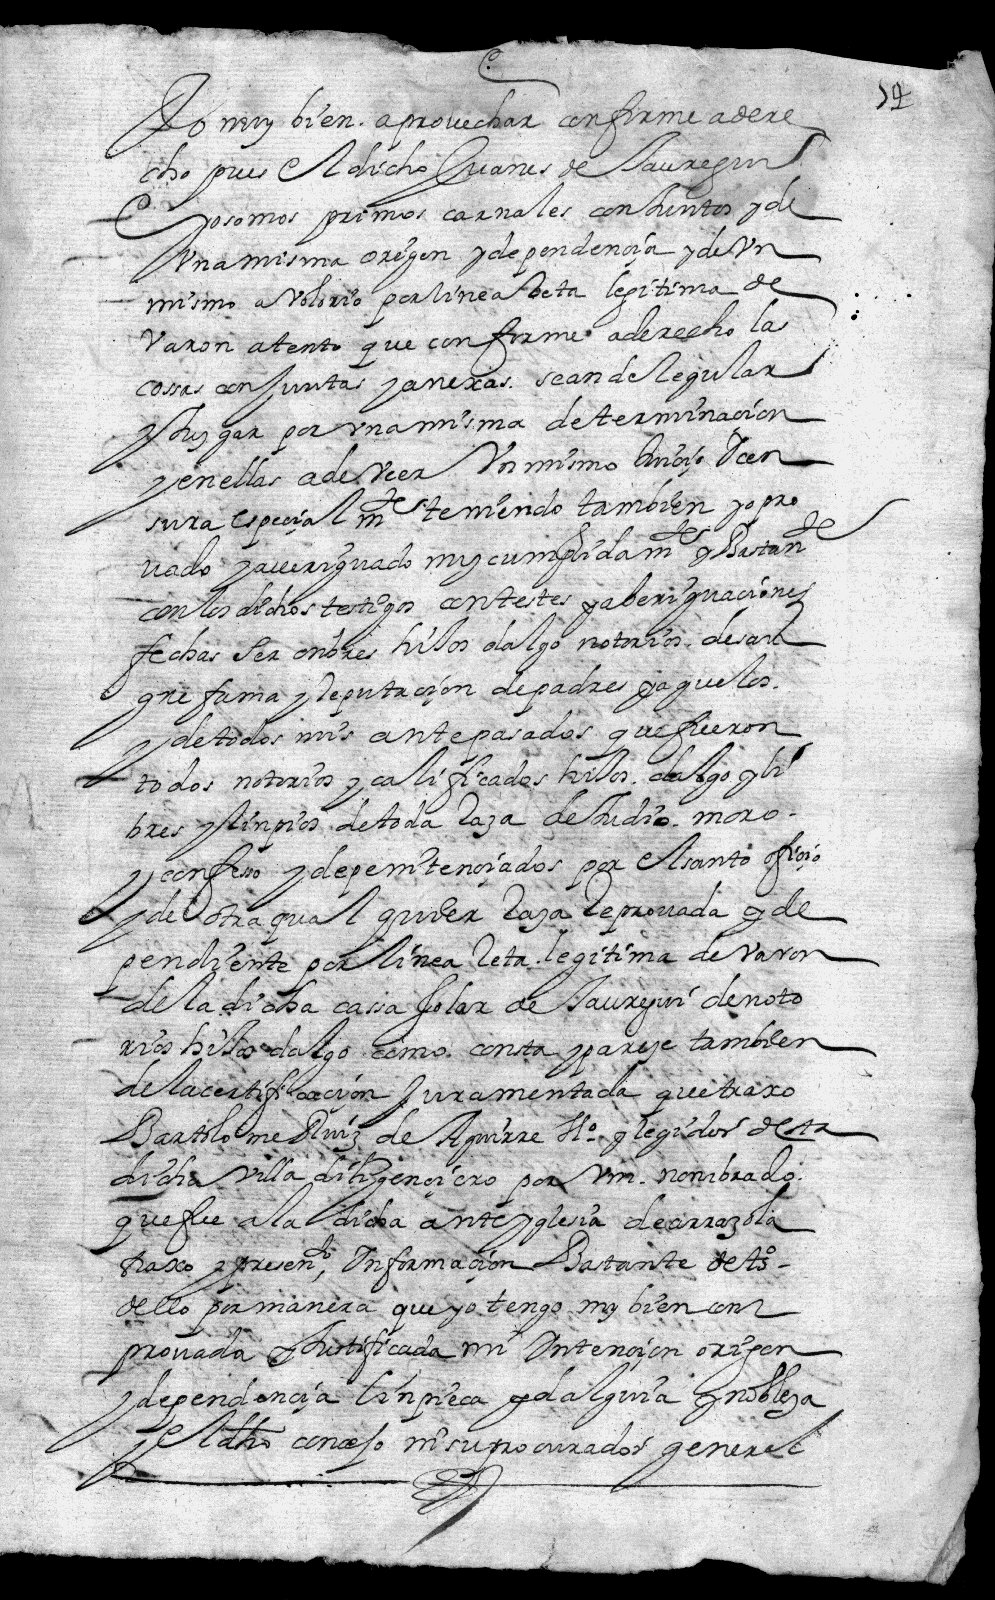 19
do muy bien aprovechar conforme a dere
cho pues el dicho Juanes de Jauregui
e yo somos primos carnales conjuntos y de
vna misma origen y dependençia y de vn
mismo avolorio por linea Reta legitima de
varon atento que conforme a derecho las
cossas conjuntas y anexas sean de Regular
y Juzgar por vna misma determinaçion
y en ellas a de veer vn mismo Juiçio y cen
sura espeçialmte teniendo tambien yo pro
uado y aueriguado muy cumplidamte y Bastante
con los dichos testigos contestes y aberiguaçiones
fechas ser onbres hijos dalgo notorios de san
gre fama y Reputaçion de padres y aguelos
y de todos mis antepasados que fueron
todos notorios y calificados hijos dalgo y li
bres y linpios de toda Raza de Judio moro
y confeso y de penitençiados por el santo ofiçio
y de otra qualquier Raza Reprouada y de
pendiente por linea Reta legitima de varon
de la dicha cassa solar de Jauregui de noto
rios hijos dalgo como consta y pareze tambien
de la certificaçion Juramentada que traxo
Bartolome Ruiz de Aguirre Hº y Regidor desta
dicha villa diligençiero por vm. nonbrado
que fue a la dicha anteyglesia de arrazola
traxo y presentº Informaçion Bastante de tº
dello por manera que yo tengo muy bien con
prouada y Justificada mi Intençion origen
y dependençia linpieça y dalguia y nobleza
y el dho conçejo ni su procurador general